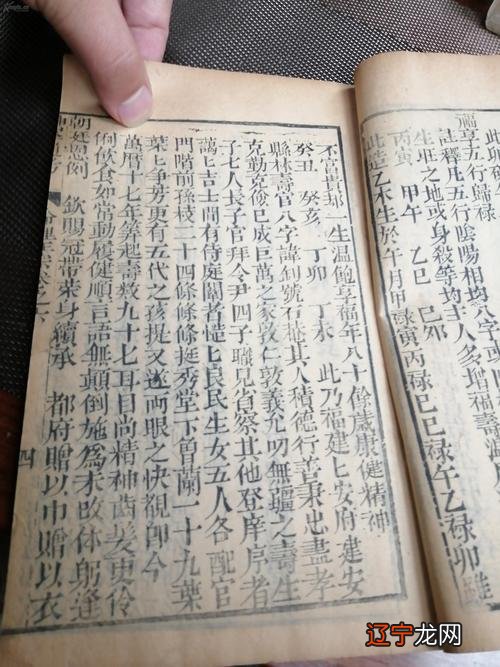 福享五行歸祿
註釋凡五行陰陽相均
生旺之地或身殺等均主人多增福壽
丙寅 甲午 乙巳 己卯
此造乙木生於午月甲祿寅丙祿巳己祿午乙祿卯雖
不富貴却一生溫飽享福年八十餘歲康健精神
癸丑 癸亥 丁卯 丁未 此乃福建建安府建安
縣林壽官八字諱釗號石菴其人積德行善秉忠盡孝
克勤克儉巳成巨萬之家敦仁敦義允叨無疆之壽生
子七人長子官拜令尹四子職見省祭其他登庠序者
藹藹吉士間有侍庭闈者愷悌良民生女五人各配官
門階前孫枝二十四條條條挺秀堂下角蘭二十九葉
葉上爭芳更有五代之孩提又遂兩眼之快覩即今
萬曆十七年築起壽敕九十七耳目尚精神齒髮更伶
俐飲食如常動履健順言語無顛倒施為未改体躬逢
朝廷恩例 欽賜冠帶榮身續承 都府贈以巾贈以衣
四
辽宁龙网
www.lnlomg.com